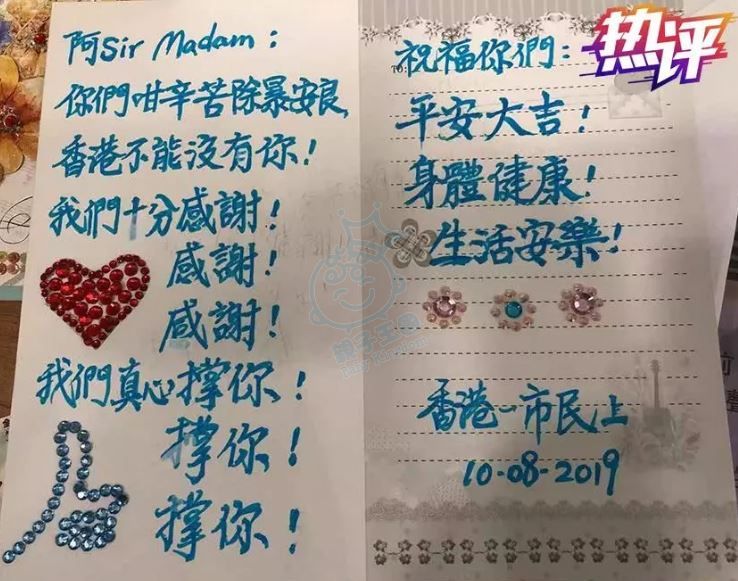 阿Sir Madam：
你們咁辛苦除暴安良
香港不能沒有你！
我們十分感謝！
感謝！
感謝！
我們真心撐你！
撐你！
撐你！
热评
祝福你們：
平安大吉！
身體健康！
生活安樂！
香港一市民上
10-08-2019